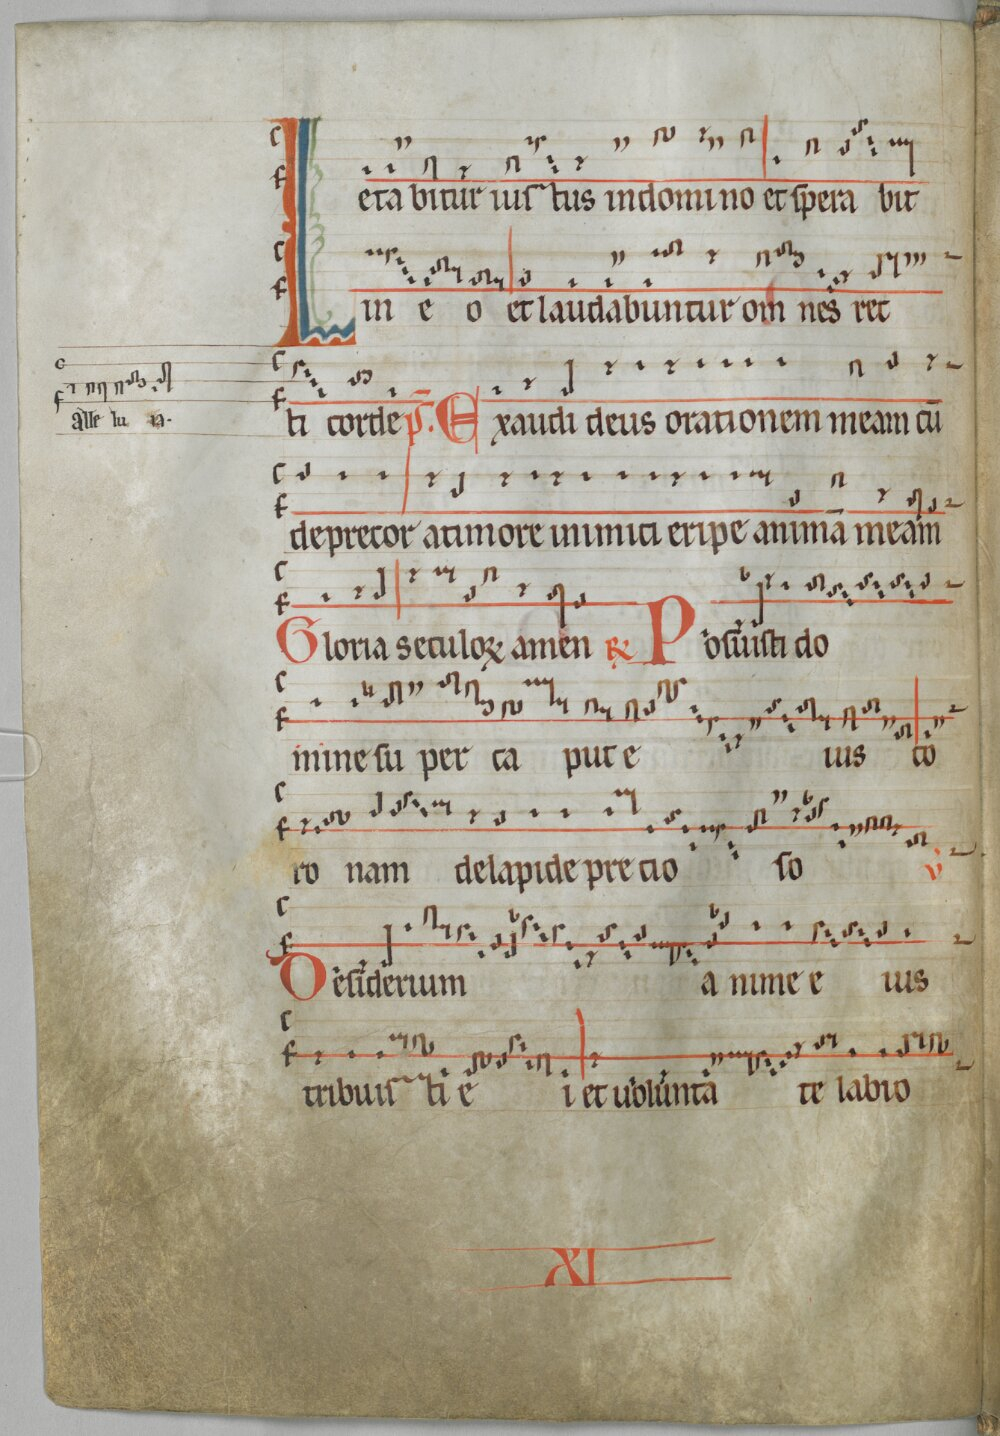 Letabitur iustus in domino et spera bit
in e o et laudabuntur om nes rec
ti corde ps. Exaudi deus orationem meam cū
alle lu ia.
deprecor a timore inimici eripe animā meam
Gloria seculoꝝ amen ℟ Posuisti do
mine su per ca put e ius co
ro nam de lapide precio so v
Desiderium a nime e ius
tribuis ti e i et uolunta te labio
XI